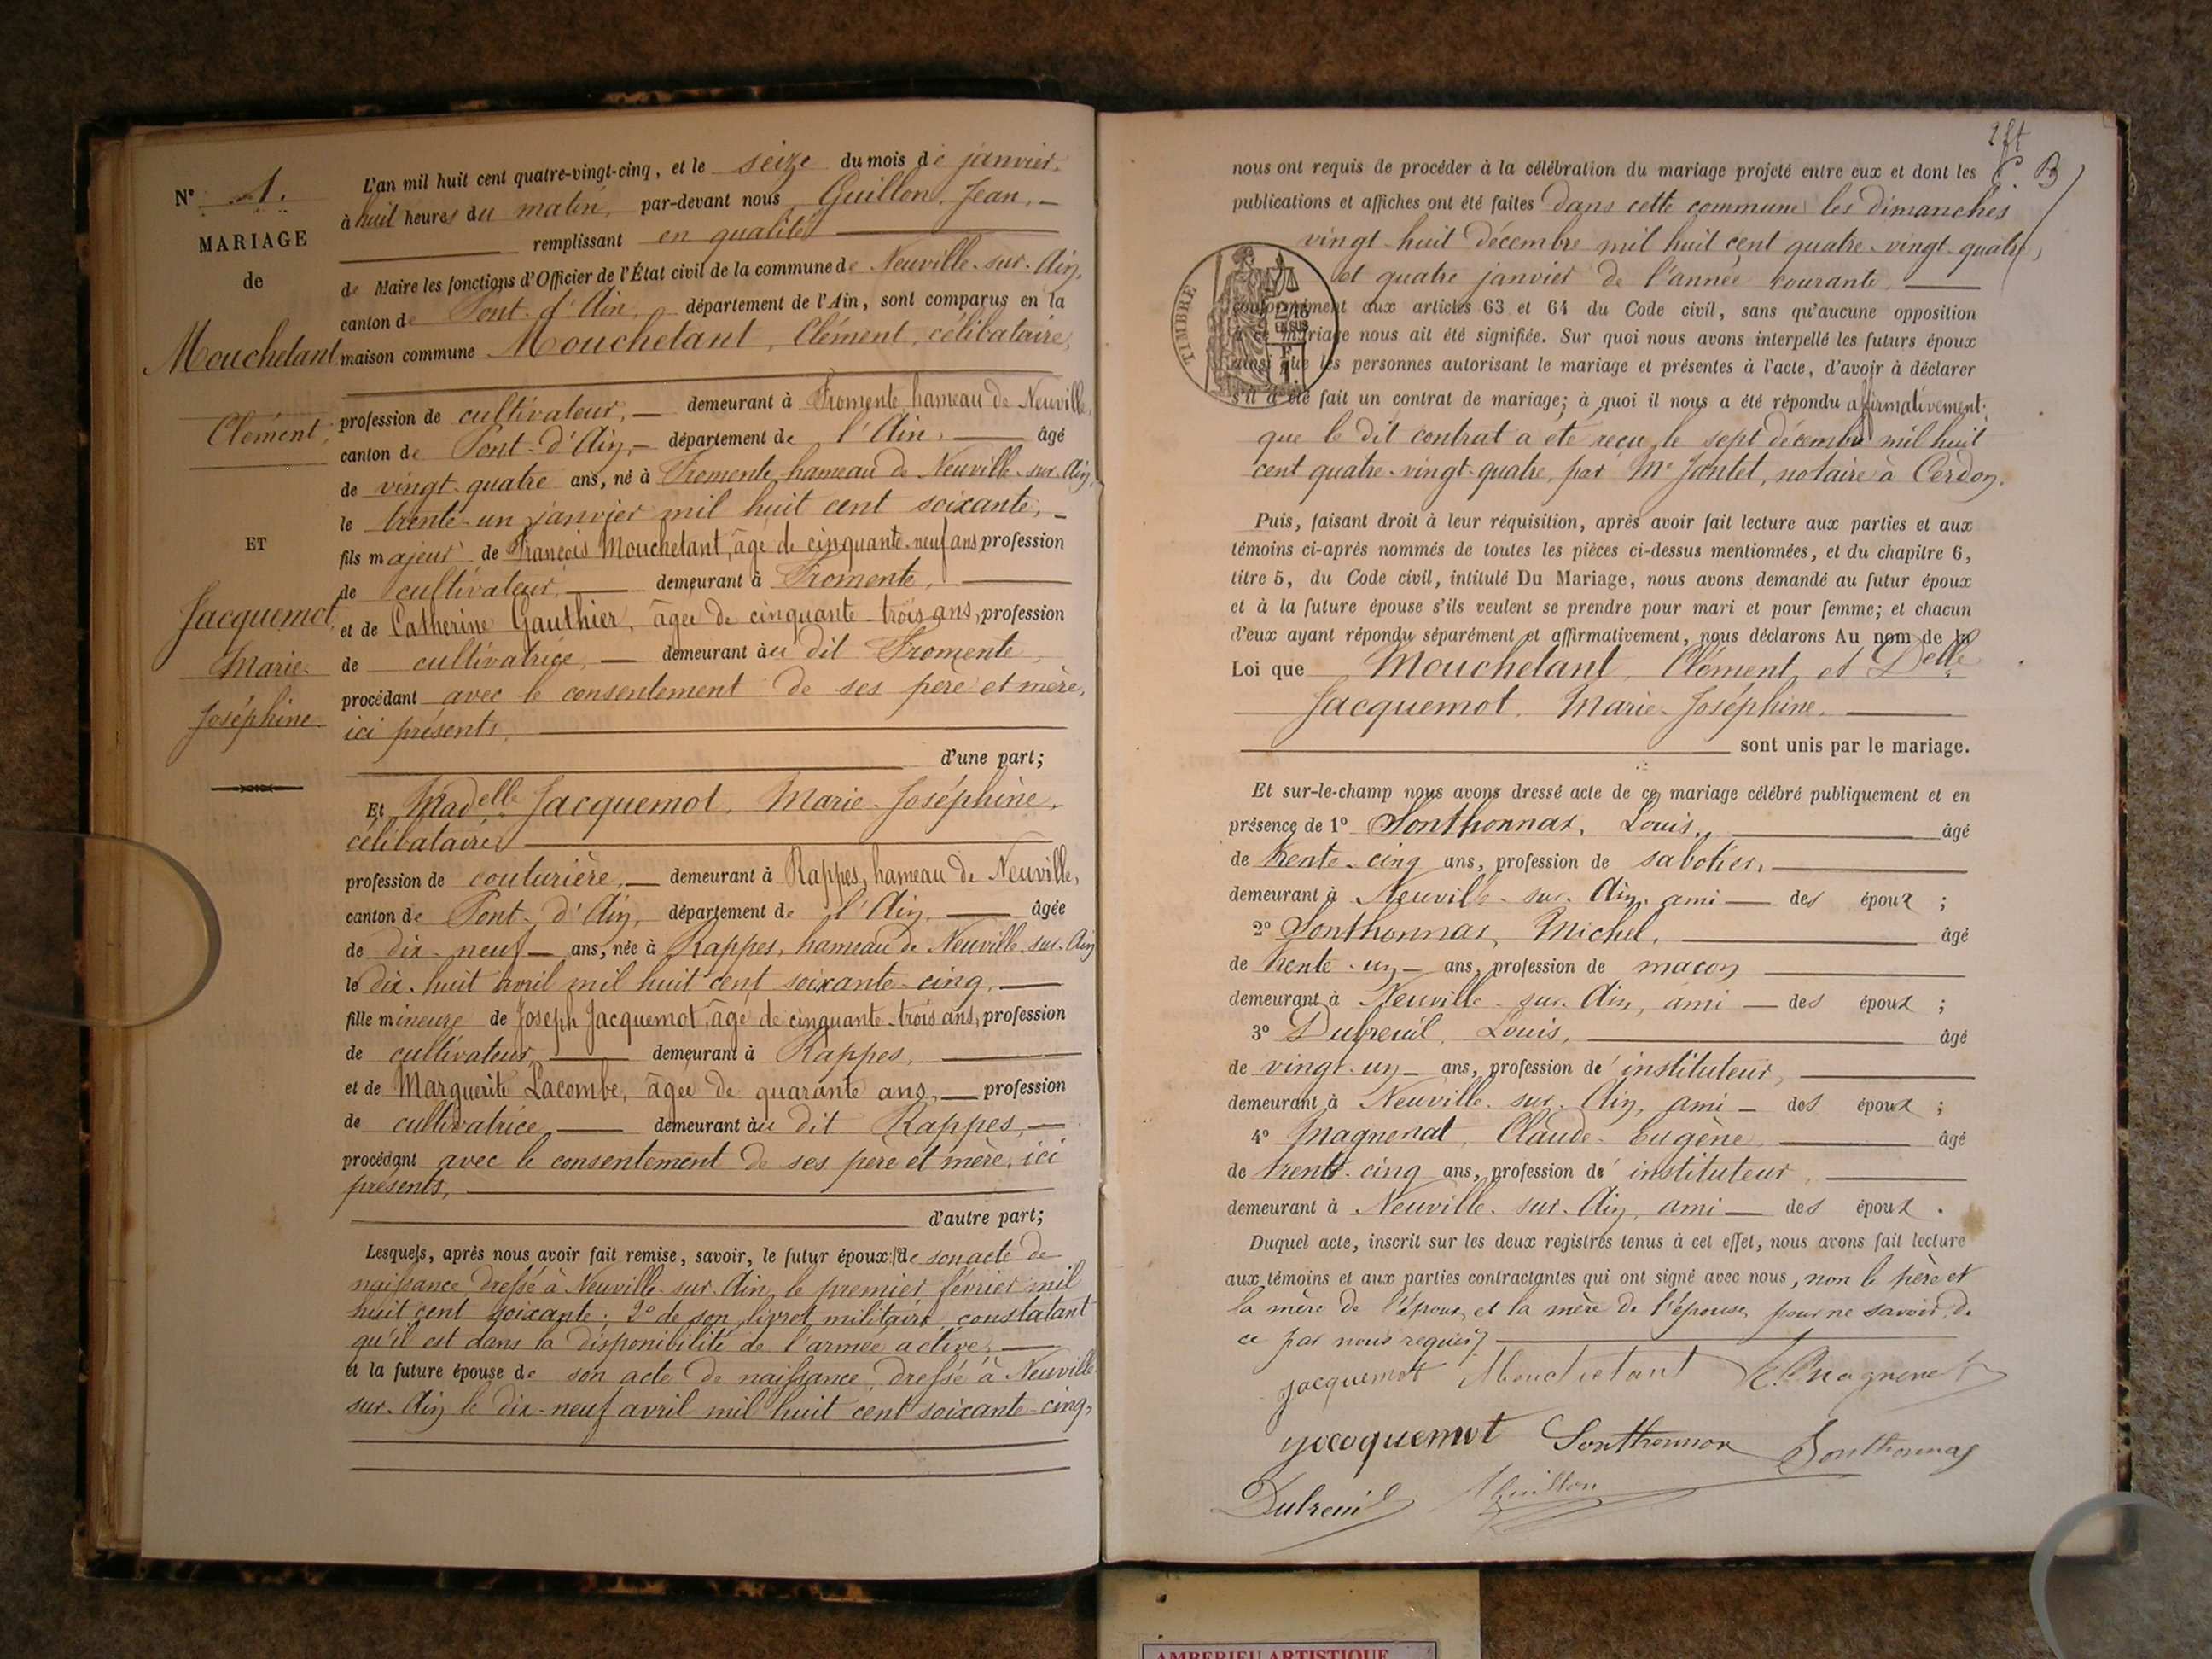 N° 1.
MARIAGE
de
Mouchetant
Clément,
ET
Jacquemot,
Marie-
Joséphine
L'an mil huit cent quatre-vingt-cinq, et le seize du mois de janvier,
à huit heures du matin, par-devant nous Guillon, Jean,
remplissant en qualité
de Maire les fonctions d'Officier de l'État civil de la commune de Neuville-sur-Ain,
canton de Pont-d'Ain, département de l'Ain, sont comparus en la
maison commune Mouchetant, Clément, célibataire,
profession de cultivateur, demeurant à Fromente, hameau de Neuville,
canton de Pont-d'Ain, département de l'Ain, âgé
de vingt-quatre ans, né à Fromente, hameau de Neuville-sur-Ain,
le trente-un janvier mil huit cent soixante,
fils majeur de François Mouchetant, âgé de cinquante-neuf ans profession
de cultivateur, demeurant à Fromente,
et de Catherine Gauthier, âgée de cinquante-trois ans, profession
de cultivatrice, demeurant au dit Fromente,
procédant avec le consentement de ses père et mère,
ici présents,
d'une part;
Et Madelle Jacquemot, Marie-Joséphine,
célibataire,
profession de couturière, demeurant à Rappes, hameau de Neuville,
canton de Pont-d'Ain, département de l'Ain, âgée
de dix-neuf ans, née à Rappes, hameau de Neuville-sur-Ain
le dix-huit avril mil huit cent soixante-cinq,
fille mineure de Joseph Jacquemot, âgé de cinquante-trois ans, profession
de cultivateur, demeurant à Rappes,
et de Marguerite Lacombe, âgée de quarante ans, profession
de cultivatrice, demeurant au dit Rappes,
procédant avec le consentement de ses père et mère, ici
présents,
d'autre part;
Lesquels, après nous avoir fait remise, savoir, le futur époux: de son acte de
naissance dressé à Neuville-sur-Ain le premier février mil
huit cent soixante; 2° de son livret militaire constatant
qu'il est dans la disponibilité de l'armée active,
et la future épouse de son acte de naissance, dressé à Neuville-
sur-Ain le dix-neuf avril mil huit cent soixante-cinq,
B
nous ont requis de procéder à la célébration du mariage projeté entre eux et dont les
publications et affiches ont été faites dans cette commune les dimanches
vingt-huit décembre mil huit cent quatre-vingt-quatre,
et quatre janvier de l'année courante,
TIMBRE
conformément aux articles 63 et 64 du Code civil, sans qu'aucune opposition
à ce mariage nous ait été signifiée. Sur quoi nous avons interpellé les futurs époux
ainsi que les personnes autorisant le mariage et présentes à l'acte, d'avoir à déclarer
s'il a été fait un contrat de mariage; à quoi il nous a été répondu affirmativement;
que le dit contrat a été reçu le sept décembre mil huit
cent quatre-vingt-quatre, par Me Jantet, notaire à Cerdon.
Puis, faisant droit à leur réquisition, après avoir fait lecture aux parties et aux
témoins ci-après nommés de toutes les pièces ci-dessus mentionnées, et du chapitre 6,
titre 5, du Code civil, intitulé Du Mariage, nous avons demandé au futur époux
et à la future épouse s'ils veulent se prendre pour mari et pour femme; et chacun
d'eux ayant répondu séparément et affirmativement, nous déclarons Au nom de la
Loi que Mouchetant, Clément, et Delle
Jacquemot, Marie-Joséphine,
sont unis par le mariage.
Et sur-le-champ nous avons dressé acte de ce mariage célébré publiquement et en
présence de 1° Sonthonnax, Louis, âgé
de trente-cinq ans, profession de sabotier,
demeurant à Neuville-sur-Ain, ami des époux ;
2° Sonthonnax, Michel, âgé
de trente-un ans, profession de maçon
demeurant à Neuville-sur-Ain, ami des époux ;
3° Dubreuil, Louis, âgé
de vingt-un ans, profession d'instituteur,
demeurant à Neuville-sur-Ain, ami des époux ;
4° Magnenat, Claude-Eugène âgé
de trente-cinq ans, profession d'instituteur,
demeurant à Neuville-sur-Ain, ami des époux .
Duquel acte, inscrit sur les deux registres tenus à cet effet, nous avons fait lecture
aux témoins et aux parties contractantes qui ont signé avec nous, non le père et
la mère de l'époux, et la mère de l'épouse, pour ne savoir, de
ce par nous requis
jacquemot Mouchetant Magnenat
jacquemot Sonthonnax Sonthonnax
Dubreuil Guillon
AMBERIEU ARTISTIQUE